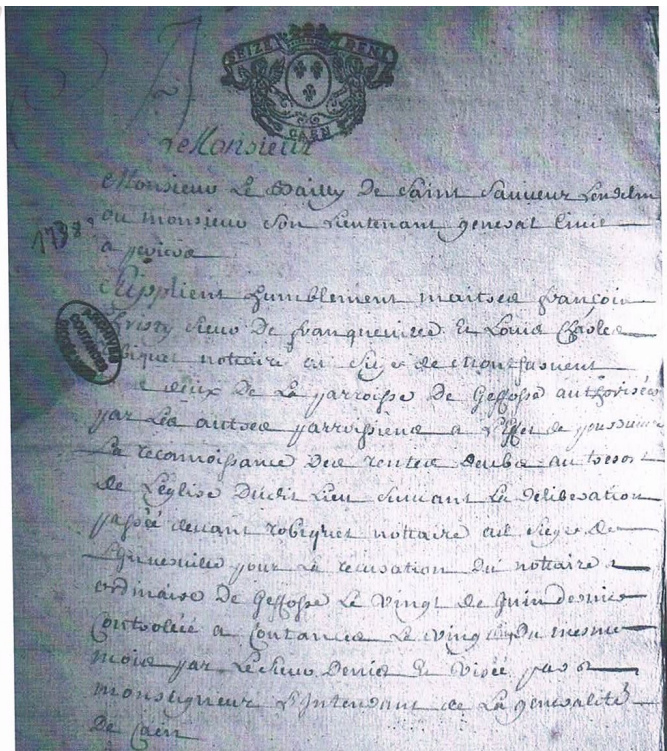 SEIZE DENI
CAEN
Monsieur
Monsieur Le Bailly de Saint Sauveur Lendelin
ou monsieur son Lieutenant general Civil
a periers
1738
Supplient humblement maitres françois
sieur De franqueville Et Louis Charles
nottaire au siege de Montsurvent
deux de La parroisse De Geffosse authorisés
par Les autres parroissiens a L'Effet de poursuivre
La reconnoissance Des rentes deubs au tresor
de L'eglise Dudit Lieu suivant La deliberation
passée devant robiquet nottaire au siege de
pour La recusation du nottaire
ordinaire De Geffosse Le Vingt de Juin dernier
Controllée a Coutances Le vingt Du mesme
mois par Le sieur Denis Et Visée par
monseigneur L'Intendant de La generalité
De Caen